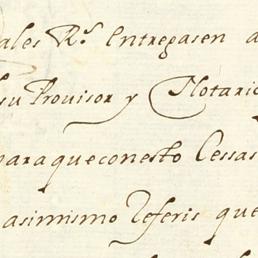 ales R.ˢ entregasen a
su Prouisor y Notario
para que con esto Cessas
asimismo referis que